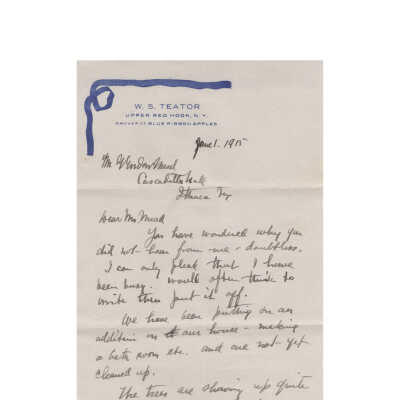 W. S. TEATOR
UPPER RED HOOK, N.Y.
GROWER OF BLUE RIBBON APPLES
June 1. 1915
Mr.
Cascadilla Hall
Ithaca Ny
Dear Mr Mead
You have wondered why you
did not hear from me - doubtless.
I can only plead that I have
been busy. Would often think to
write then put it off.
We have been putting on an
addition on to our house - making
a bath room etc. and are not yet
cleaned up.
The trees are showing up quite